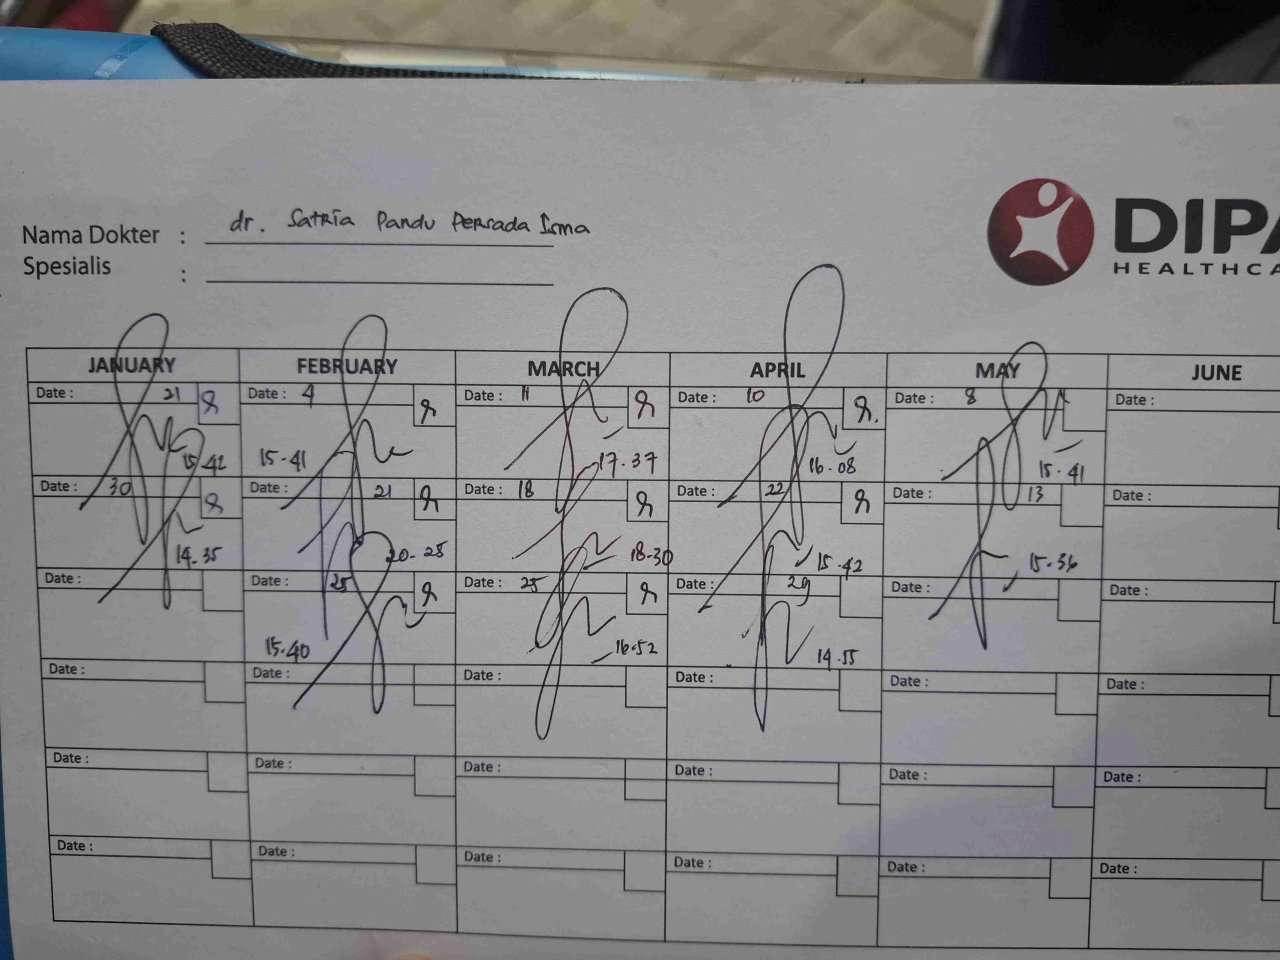 Nama Dokter : dr. Satria Pandu Persada Isma
Spesialis :
DIPA
HEALTHCA
JANUARY FEBRUARY MARCH APRIL MAY JUNE
Date : 21 Date : 4 Date : 11 Date : 10 Date : 8 Date :
15.42 15.41 17.37 16.08 15.41
Date : 30 Date : 21 Date : 18 Date : 22 Date : 13 Date :
14.35 20.25 18.30 15.42 15.36
Date : Date : 25 Date : 25 Date : 29 Date : Date :
15.40 16.52 14.55
Date : Date : Date : Date : Date : Date :
Date : Date : Date : Date : Date : Date :
Date : Date : Date : Date : Date : Date :